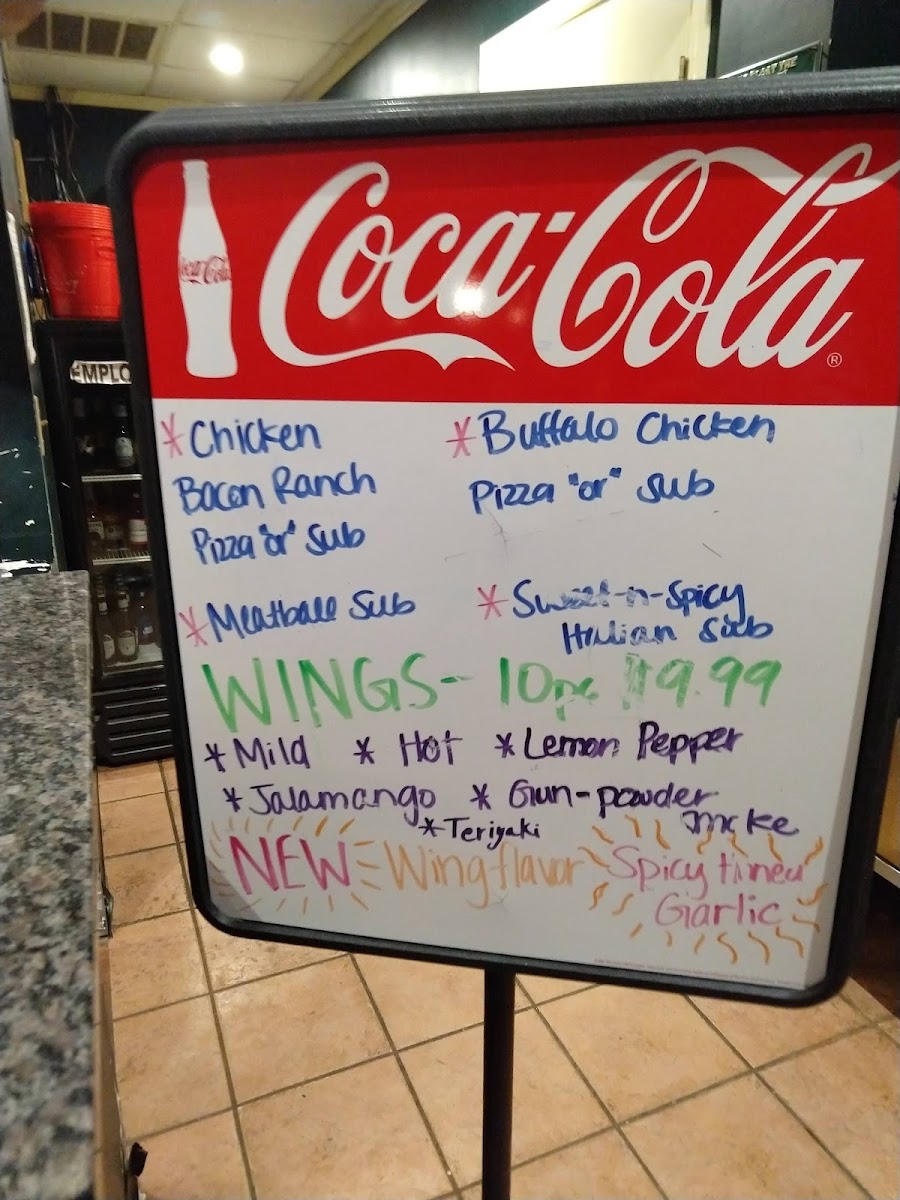 Coca-Cola
Coca-Cola ®
EMPLO
* Chicken
Bacon Ranch
Pizza "or" Sub
* Buffalo Chicken
Pizza "or" Sub
* Meatball Sub
* Sweet-n-Spicy
Italian Sub
WINGS- 10pc $9.99
* Mild * Hot * Lemon Pepper
* Jalamango * Gun-powder
smoke
* Teriyaki
NEW Wing flavor Spicy
Garlic